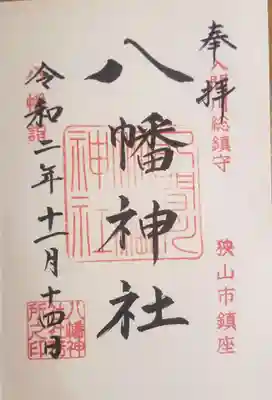 奉拝
入間川総鎮守
狭山市鎮座
八幡神社
八幡神社社務所之印
令和二年十一月十四日